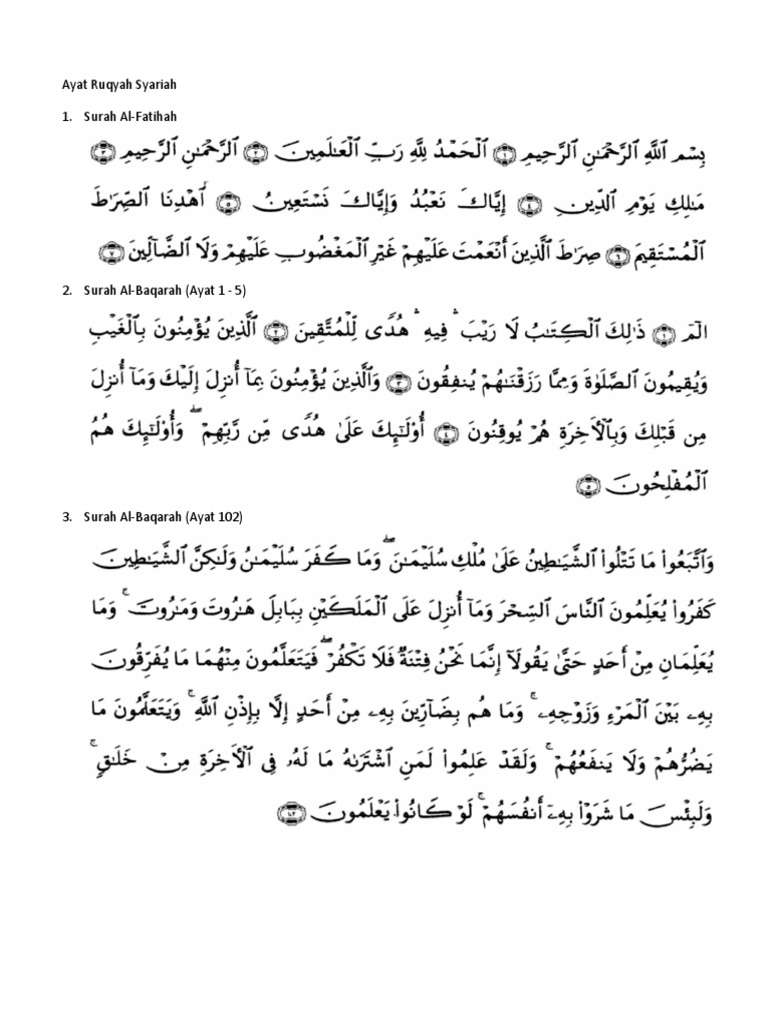 Ayat Ruqyah Syariah
1. Surah Al-Fatihah
بِسْمِ ٱللَّهِ ٱلرَّحْمَٰنِ ٱلرَّحِيمِ ﴿١﴾ ٱلْحَمْدُ لِلَّهِ رَبِّ ٱلْعَٰلَمِينَ ﴿٢﴾ ٱلرَّحْمَٰنِ ٱلرَّحِيمِ ﴿٣﴾
مَٰلِكِ يَوْمِ ٱلدِّينِ ﴿٤﴾ إِيَّاكَ نَعْبُدُ وَإِيَّاكَ نَسْتَعِينُ ﴿٥﴾ ٱهْدِنَا ٱلصِّرَٰطَ
ٱلْمُسْتَقِيمَ ﴿٦﴾ صِرَٰطَ ٱلَّذِينَ أَنْعَمْتَ عَلَيْهِمْ غَيْرِ ٱلْمَغْضُوبِ عَلَيْهِمْ وَلَا ٱلضَّآلِّينَ ﴿٧﴾
2. Surah Al-Baqarah (Ayat 1 - 5)
الٓمٓ ﴿١﴾ ذَٰلِكَ ٱلْكِتَٰبُ لَا رَيْبَ ۛ فِيهِ ۛ هُدًى لِّلْمُتَّقِينَ ﴿٢﴾ ٱلَّذِينَ يُؤْمِنُونَ بِٱلْغَيْبِ
وَيُقِيمُونَ ٱلصَّلَوٰةَ وَمِمَّا رَزَقْنَٰهُمْ يُنفِقُونَ ﴿٣﴾ وَٱلَّذِينَ يُؤْمِنُونَ بِمَآ أُنزِلَ إِلَيْكَ وَمَآ أُنزِلَ
مِن قَبْلِكَ وَبِٱلْءَاخِرَةِ هُمْ يُوقِنُونَ ﴿٤﴾ أُو۟لَٰٓئِكَ عَلَىٰ هُدًى مِّن رَّبِّهِمْ ۖ وَأُو۟لَٰٓئِكَ هُمُ
ٱلْمُفْلِحُونَ ﴿٥﴾
3. Surah Al-Baqarah (Ayat 102)
وَٱتَّبَعُوا۟ مَا تَتْلُوا۟ ٱلشَّيَٰطِينُ عَلَىٰ مُلْكِ سُلَيْمَٰنَ ۖ وَمَا كَفَرَ سُلَيْمَٰنُ وَلَٰكِنَّ ٱلشَّيَٰطِينَ
كَفَرُوا۟ يُعَلِّمُونَ ٱلنَّاسَ ٱلسِّحْرَ وَمَآ أُنزِلَ عَلَى ٱلْمَلَكَيْنِ بِبَابِلَ هَٰرُوتَ وَمَٰرُوتَ ۚ وَمَا
يُعَلِّمَانِ مِنْ أَحَدٍ حَتَّىٰ يَقُولَآ إِنَّمَا نَحْنُ فِتْنَةٌ فَلَا تَكْفُرْ ۖ فَيَتَعَلَّمُونَ مِنْهُمَا مَا يُفَرِّقُونَ
بِهِۦ بَيْنَ ٱلْمَرْءِ وَزَوْجِهِۦ ۚ وَمَا هُم بِضَآرِّينَ بِهِۦ مِنْ أَحَدٍ إِلَّا بِإِذْنِ ٱللَّهِ ۚ وَيَتَعَلَّمُونَ مَا
يَضُرُّهُمْ وَلَا يَنفَعُهُمْ ۚ وَلَقَدْ عَلِمُوا۟ لَمَنِ ٱشْتَرَىٰهُ مَا لَهُۥ فِى ٱلْءَاخِرَةِ مِنْ خَلَٰقٍ ۚ
وَلَبِئْسَ مَا شَرَوْا۟ بِهِۦٓ أَنفُسَهُمْ ۚ لَوْ كَانُوا۟ يَعْلَمُونَ ﴿١٠٢﴾